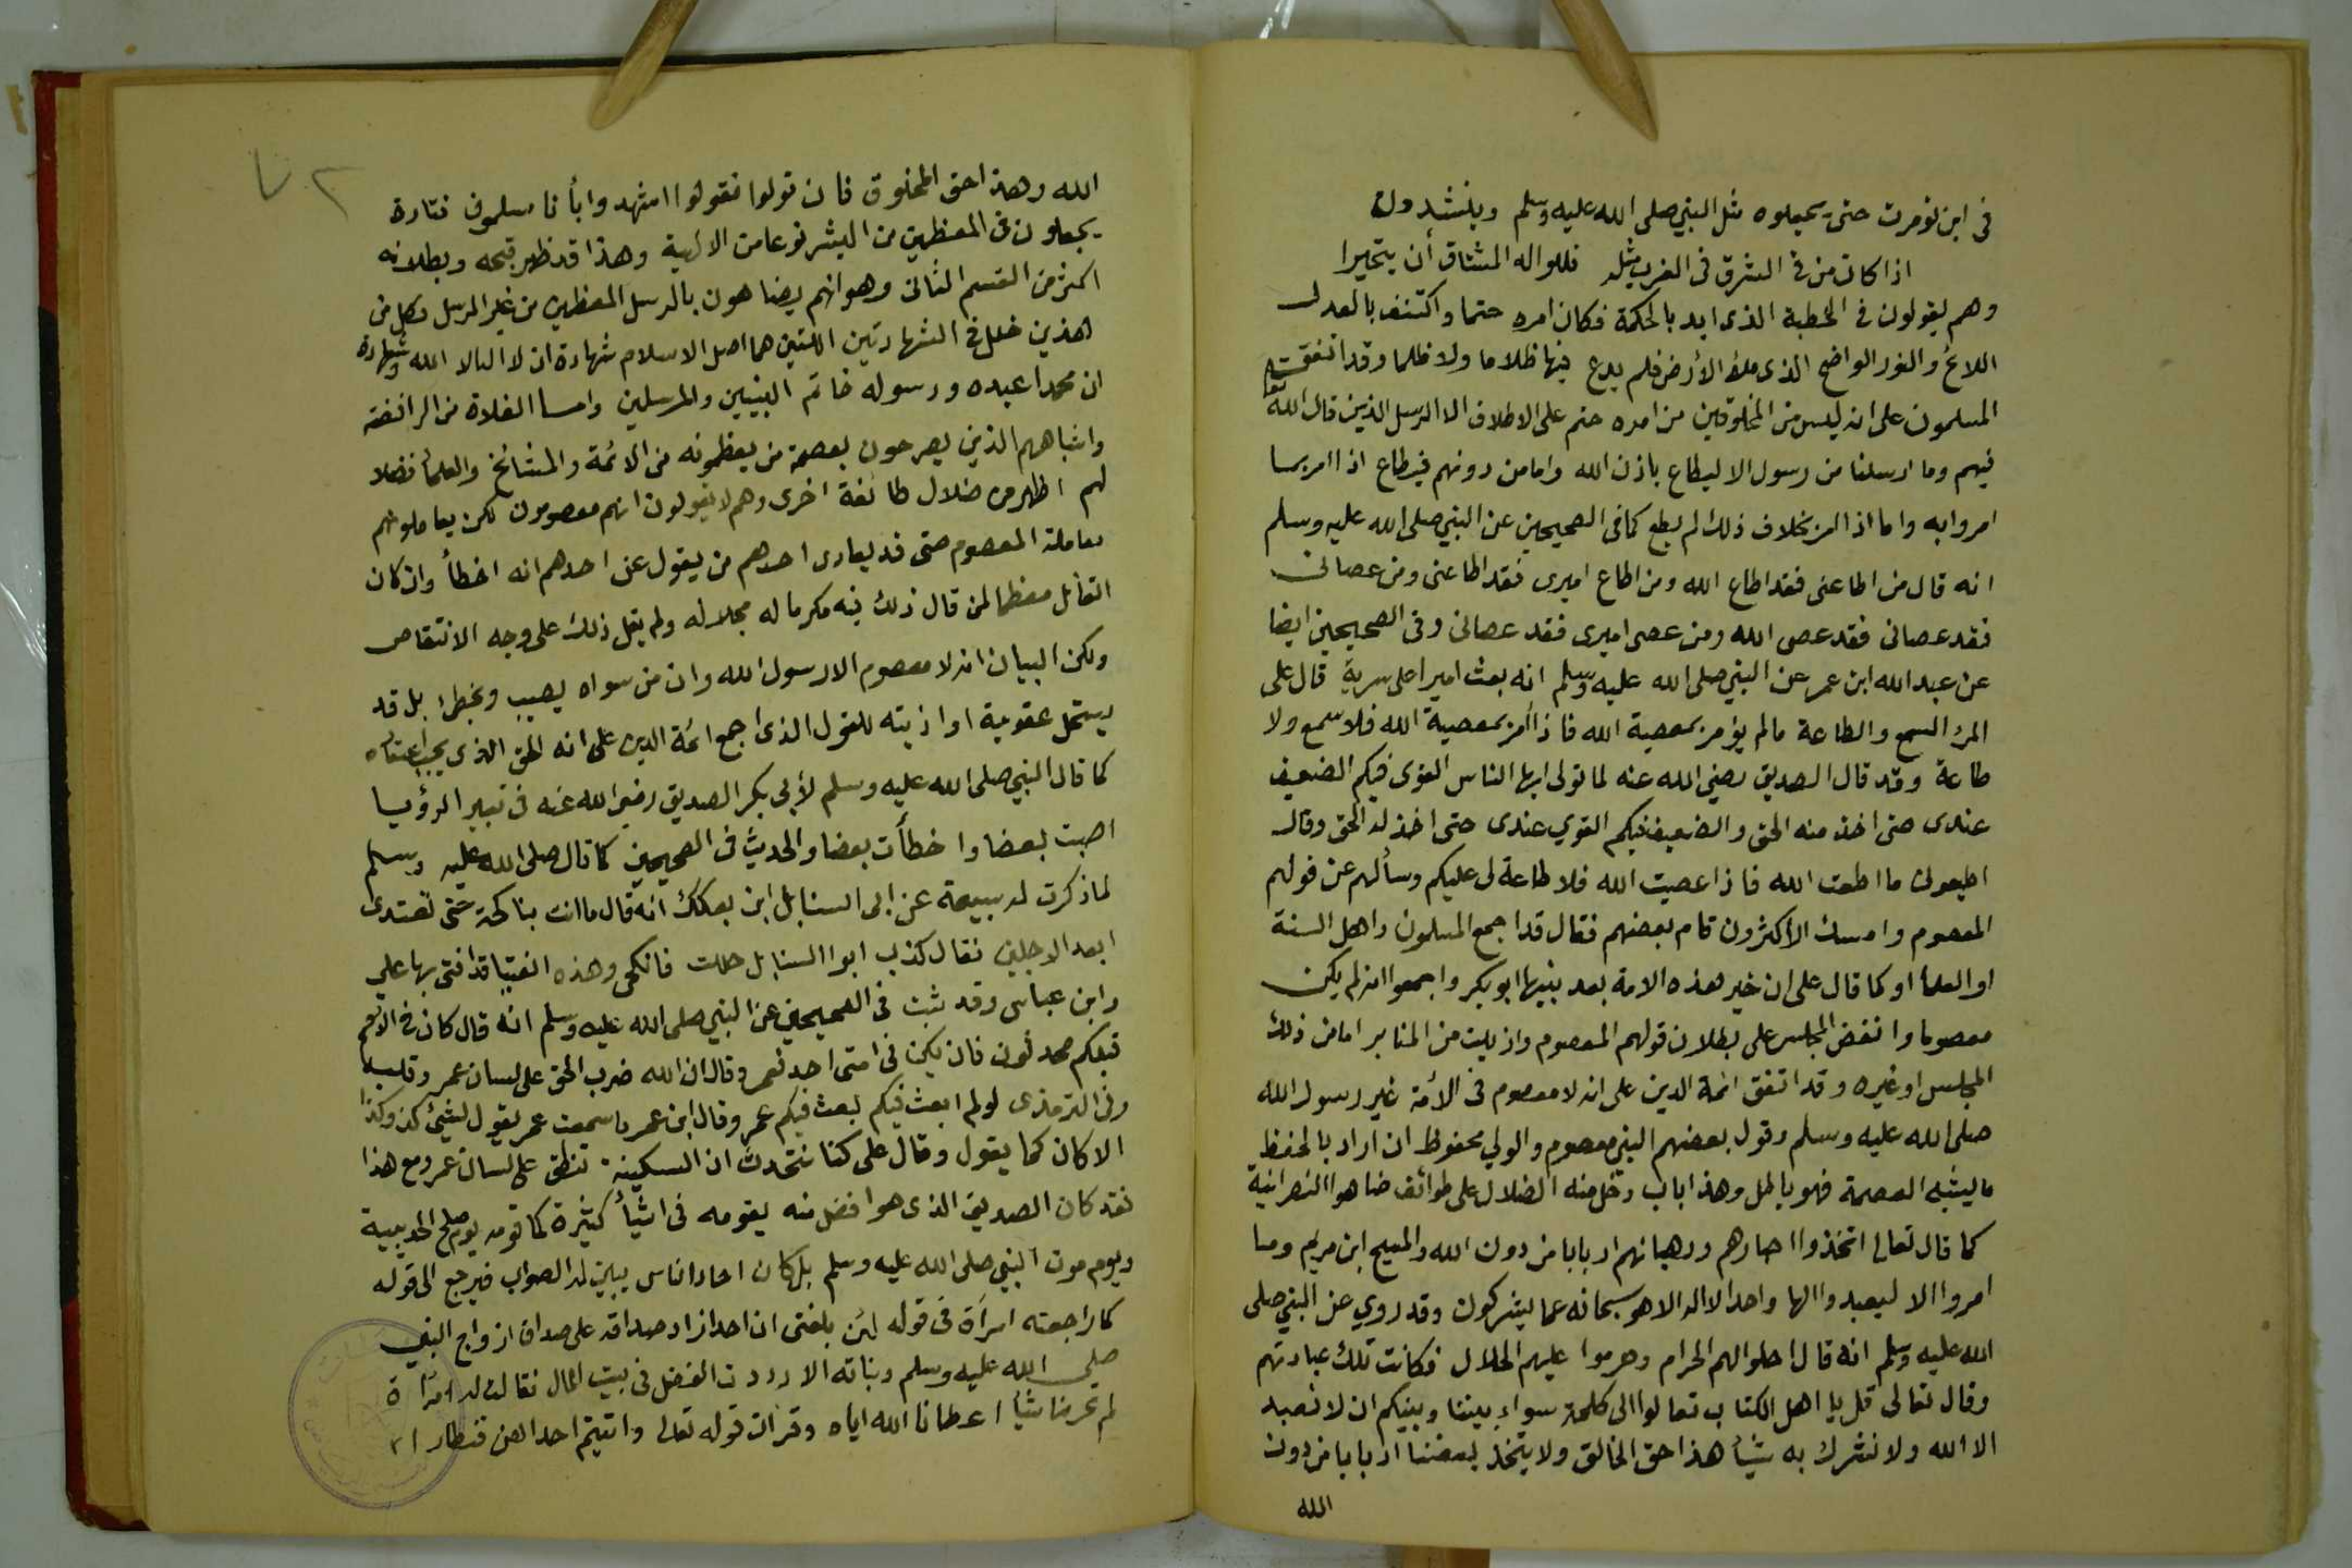 في ابن تومرت حتى يجعلوه مثل النبي صلى الله عليه وسلم وينشدون
اذا كان من في الشرق في الغرب مثله فللواله المشتاق أن يتحيرا
وهم يقولون في الخطبة الذي ايد بالحكمة فكان امره حتما واكتنف بالعدل
اللائح والنور الواضح الذي ملأ الأرض فلم يدع فيها ظلاما ولا ظلما وقد اتفق
المسلمون على انه ليس من المخلوقين من امره حتم على الاطلاق الا الرسل الذين قال الله تعالى
فيهم وما ارسلنا من رسول الا ليطاع باذن الله واما من دونهم فيطاع اذا امر بما
امروا به واما اذا امر بخلاف ذلك لم يطع كما في الصحيحين عن النبي صلى الله عليه وسلم
انه قال من اطاعني فقد اطاع الله ومن اطاع اميري فقد اطاعني ومن عصاني
فقد عصاني فقد عصى الله ومن عصى اميري فقد عصاني وفي الصحيحين ايضا
عن عبد الله ابن عمر عن النبي صلى الله عليه وسلم انه بعث اميرا على سرية قال على
المرء السمع والطاعة ما لم يؤمر بمعصية الله فاذا أمر بمعصية الله فلا سمع ولا
طاعة وقد قال الصديق رضي الله عنه لما تولى ايها الناس القوي فيكم الضعيف
عندى حتى اخذ منه الحق والضعيف فيكم القوي عندى حتى اخذ له الحق وقال
اطيعوني ما اطعت الله فاذا عصيت الله فلا طاعة لي عليكم وسألهم عن قولهم
المعصوم وامسك الأكثرون قام بعضهم فقال قد اجمع المسلمون واهل السنة
او العلماء او كما قال على ان خير هذه الامة بعد نبيها ابو بكر واجمعوا انه لم يكن
معصوما وانفض المجلس على بطلان قولهم المعصوم وازيلت من المنابر اما من ذلك
المجلس او غيره وقد اتفق ائمة الدين على انه لا معصوم في الأمة غير رسول الله
صلى الله عليه وسلم وقول بعضهم النبي معصوم والولي محفوظ ان اراد بالحفظ
ما يشبه العصمة فهو باطل وهذا باب دخل منه الضلال على طوائف ضاهوا النصرانية
كما قال تعالى اتخذوا احبارهم ورهبانهم اربابا من دون الله والمسيح ابن مريم وما
امروا الا ليعبدوا الها واحدا لا اله الا هو سبحانه عما يشركون وقد روي عن النبي صلى
الله عليه وسلم انه قال احلوا لهم الحرام وحرموا عليهم الحلال فكانت تلك عبادتهم
وقال تعالى قل يا اهل الكتاب تعالوا الى كلمة سواء بيننا وبينكم ان لا نعبد
الا الله ولا نشرك به شيأ هذا حق الخالق ولا يتخذ بعضنا اربابا من دون
الله
٧٢
الله وهذا حق المخلوق فان تولوا فقولوا اشهدوا بأنا مسلمون فتارة
يجعلون في المعظمين من البشر نوعا من الالهية وهذا قد ظهر قبحه وبطلانه
اكثر من القسم الثاني وهو انهم يضاهون بالرسل المعظمين من غير الرسل وكل من
هذين خلل في الشهادتين اللتين هما اصل الاسلام شهادة ان لا اله الا الله وشهادة
ان محمدا عبده ورسوله خاتم النبيين والمرسلين واما الغلاة من الرافضة
واشباههم الذين يصرحون بعصمة من يعظمونه من الائمة والمشائخ والعلماء فضلا
لهم اظهر من ضلال طائفة اخرى وهم لا يقولون انهم معصومون لكن يعاملونهم
معاملة المعصوم حتى قد يعادى احدهم من يقول عن احدهم انه اخطأ وان كان
القائل معظما لمن قال ذلك فيه مكرما له مجلا له ولم يقل ذلك على وجه الانتقاص
ولكن البيان انه لا معصوم الا رسول الله وان من سواه يصيب ويخطئ بل قد
يستحل عقوبة او اذيته للقول الذي اجمع ائمة الدين على انه الحق الذي يجب اعتقاده
كما قال النبي صلى الله عليه وسلم لأبي بكر الصديق رضي الله عنه في تعبير الرؤيا
اصبت بعضا واخطأت بعضا والحديث في الصحيحين كما قال صلى الله عليه وسلم
لما ذكرت له سبيعة عن ابي السنابل ابن بعكك انه قال ما انت بناكحة حتى تعتدى
ابعد الاجلين فقال كذب ابوا السنابل حللت فانكحي وهذه الفتيا قد افتى بها علي
وابن عباس وقد ثبت في الصحيحين عن النبي صلى الله عليه وسلم انه قال كان في الامم
قبلكم محدثون فان يكن في امتى احد فعمر وقال ان الله ضرب الحق على لسان عمر وقلبه
وفي الترمذى لو لم ابعث فيكم لبعث فيكم عمر وقال ابن عمر ما سمعت عمر يقول لشيئ كذا وكذا
الا كان كما يقول وقال على كنا نتحدث ان السكينة تنطق على لسان عمر ومع هذا
فقد كان الصديق الذي هو افضل منه يقومه في اشيأ كثيرة كما قومه يوم صلح الحديبية
ويوم موت النبي صلى الله عليه وسلم بل كان احاد الناس يبين له الصواب فيرجع الى قوله
كما راجعته امرأة في قوله لئن بلغني ان احدا زاد صداقه على صداق ازواج النبي
صلى الله عليه وسلم وبناته الا رددت الفضل في بيت المال فقالت له امرأة
لم تحرمنا شيأ اعطانا الله اياه وقرأت قوله تعالى واتيتم احداهن قنطارا